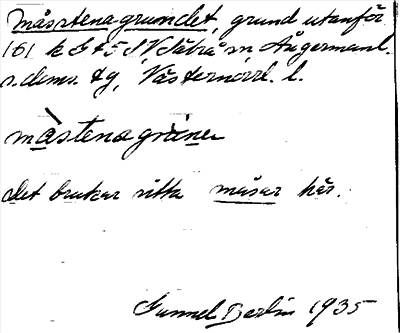 måsstenagrundet, grund utanför
161 k S Säbrå sn Ångermanl.
s. dome. tg, Västernorrl. l.
måstenagrúner
det brukar sitta måsar här.
Gunnel Berlin 1935